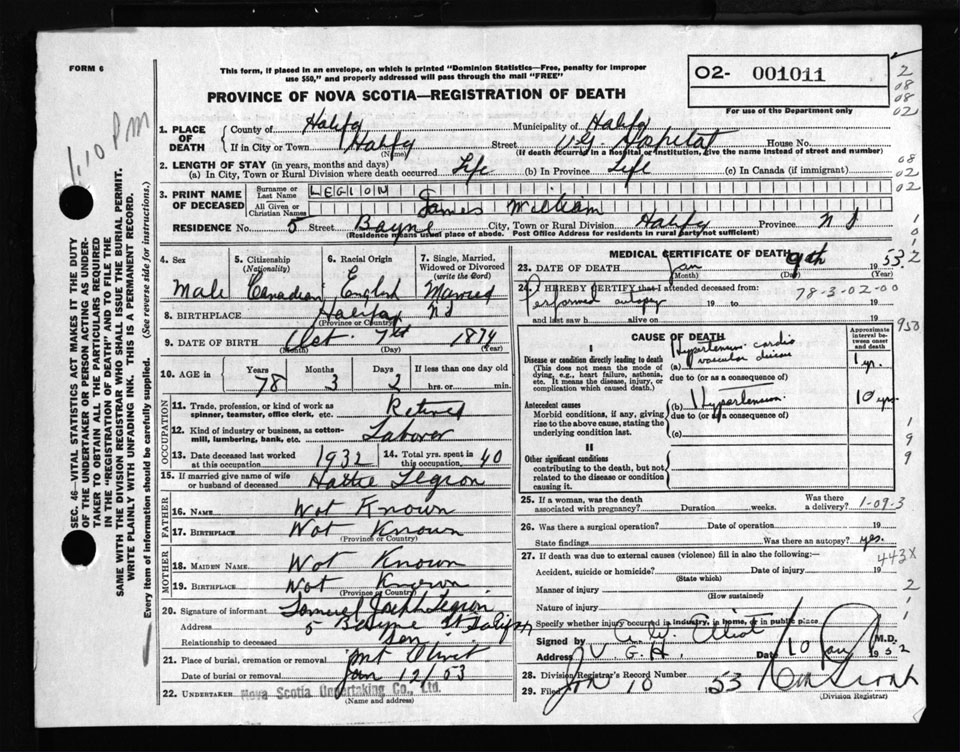 FORM 6
This form, if placed in an envelope, on which is printed "Dominion Statistics—Free, penalty for improper
use $50," and properly addressed will pass through the mail "FREE"
O2- 001011
For use of the Department only
PROVINCE OF NOVA SCOTIA—REGISTRATION OF DEATH
1:10 PM
2
08
08
02
08
02
1. PLACE OF DEATH County of Halifax Municipality of Halifax
If in City or Town Halifax Street V.G. Hospital House No.
(Name) (If death occurred in a hospital or institution, give the name instead of street and number)
2. LENGTH OF STAY (in years, months and days)
(a) In City, Town or Rural Division where death occurred Life (b) In Province Life (c) In Canada (if immigrant)
3. PRINT NAME OF DECEASED Surname or Last Name LEGION
All Given or Christian Names James William
RESIDENCE No. 5 Street Bayne City, Town or Rural Division Halifax Province N S
(Residence means usual place of abode. Post Office Address for residents in rural party not sufficient)
4. Sex Male
5. Citizenship (Nationality) Canadian
6. Racial Origin English
7. Single, Married, Widowed or Divorced (write the word) Married
8. BIRTHPLACE Halifax N S
(Province or Country)
9. DATE OF BIRTH Oct. 7th 1874
(Month) (Day) (Year)
10. AGE in Years 78 Months 3 Days 2 If less than one day old hrs. or min.
OCCUPATION
11. Trade, profession, or kind of work as spinner, teamster, office clerk, etc. Retired
12. Kind of industry or business, as cotton-mill, lumbering, bank, etc. Laborer
13. Date deceased last worked at this occupation 1932 14. Total yrs. spent in this occupation 40
15. If married give name of wife or husband of deceased Hattie Legion
FATHER
16. NAME Not Known
17. BIRTHPLACE Not Known
(Province or Country)
MOTHER
18. MAIDEN NAME Not Known
19. BIRTHPLACE Not Known
(Province or Country)
20. Signature of informant Samuel Joseph Legion
Address 5 Bayne St Halifax
Relationship to deceased Son
21. Place of burial, cremation or removal Mt Olivet
Date of burial or removal Jan 12/53
22. UNDERTAKER Nova Scotia Undertaking Co., Ltd.
(Name and address)
MEDICAL CERTIFICATE OF DEATH
23. DATE OF DEATH Jan 9th 1953
(Month) (Day) (Year)
24. I HEREBY CERTIFY that I attended deceased from:
Performed autopsy 19 to 19
78-3-02-00
and last saw h alive on 19
950
CAUSE OF DEATH
Approximate interval between onset and death
I
Disease or condition directly leading to death
(This does not mean the mode of dying, e.g., heart failure, asthenia, etc. It means the disease, injury, or complication which caused death.)
(a) Hypertensive cardio vascular disease 1 yr.
due to (or as a consequence of)
Antecedent causes
Morbid conditions, if any, giving rise to the above cause, stating the underlying condition last.
(b) Hypertension 10 yrs
due to (or as a consequence of)
(c)
II
Other significant conditions
contributing to the death, but not related to the disease or condition causing it.
1
9
9
25. If a woman, was the death associated with pregnancy? Duration weeks. Was there a delivery? 1-09-3
26. Was there a surgical operation? Date of operation 19
State findings Was there an autopsy? yes.
27. If death was due to external causes (violence) fill in also the following:—
443X
Accident, suicide or homicide? Date of injury 19
(State which)
Manner of injury
(How sustained)
Nature of injury
Specify whether injury occurred in industry, in home, or in public place.
Signed by M.D.
Address V.G.H. Date 10 Jan 1952
28. Division Registrar's Record Number
29. Filed Jan 10 53
(Division Registrar)
SEC. 46—VITAL STATISTICS ACT MAKES IT THE DUTY
OF THE UNDERTAKER OR PERSON ACTING AS UNDER-
TAKER TO OBTAIN ALL THE PARTICULARS REQUIRED
IN THE "REGISTRATION OF DEATH" AND TO FILE THE
SAME WITH THE DIVISION REGISTRAR WHO SHALL ISSUE THE BURIAL PERMIT.
WRITE PLAINLY WITH UNFADING INK. THIS IS A PERMANENT RECORD.
Every item of information should be carefully supplied. (See reverse side for instructions.)